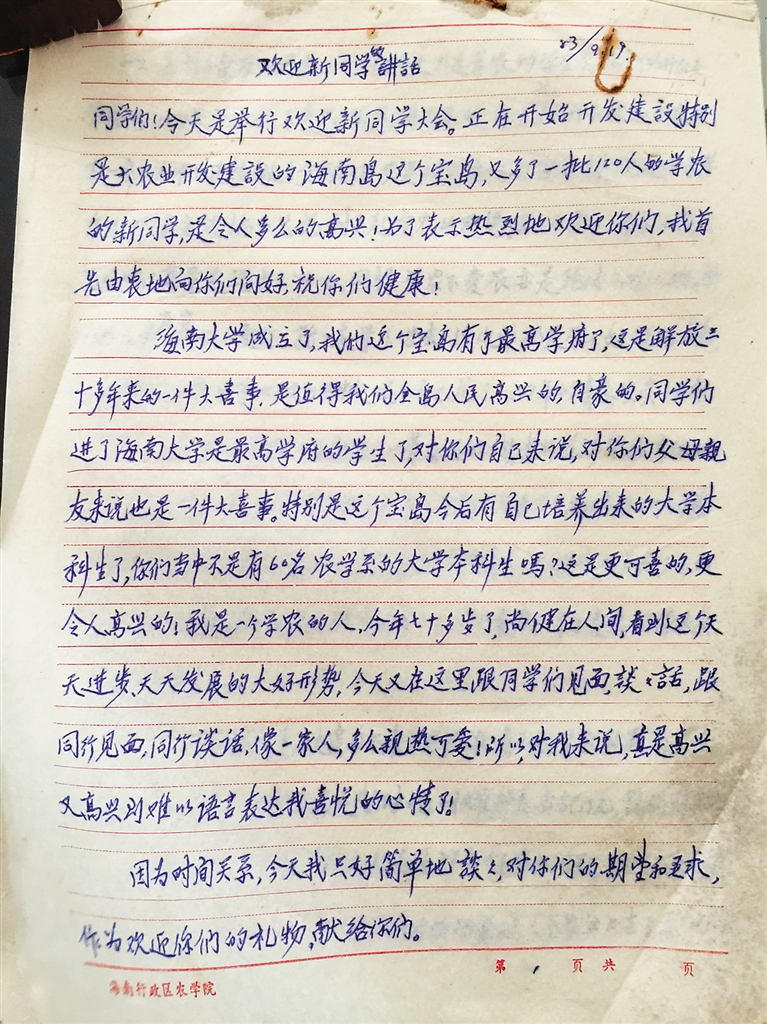 83/9.19.
欢迎新同学的講話
同学们!今天是举行欢迎新同学大会。正在开始开发建設特别
是大农业开发建設的海南島这个宝岛,又多了一批120人的学农
的新同学,是令人多么的高兴!为了表示热烈地欢迎你们,我首
先由衷地向你们问好,祝你们健康!
海南大学成立了,我们这个宝岛有了最高学府了,这是解放三
十多年来的一件大喜事,是值得我们全岛人民高兴的,自豪的。同学们
进了海南大学是最高学府的学生了,对你们自己来说,对你们父母親
友来说也是一件大喜事。特别是这个宝岛今后有自己培养出来的大学本
科生了,你们当中不是有60名农学系的大学本科生嗎?这是更可喜的,更
令人高兴的!我是一个学农的人,今年七十多岁了,尚健在人间,看到这个天
天进步、天天发展的大好形势,今天又在这里跟同学们见面,談々話,跟
同行见面,同行谈话,像一家人,多么親热可爱!所以,对我来说,真是高兴
又高兴到难以语言表达我喜悦的心情了!
因为时间关系,今天我只好简单地談々,对你们的期望和要求,
作为欢迎你们的礼物,献给你们。
第 1 页共 页
海南行政区农学院